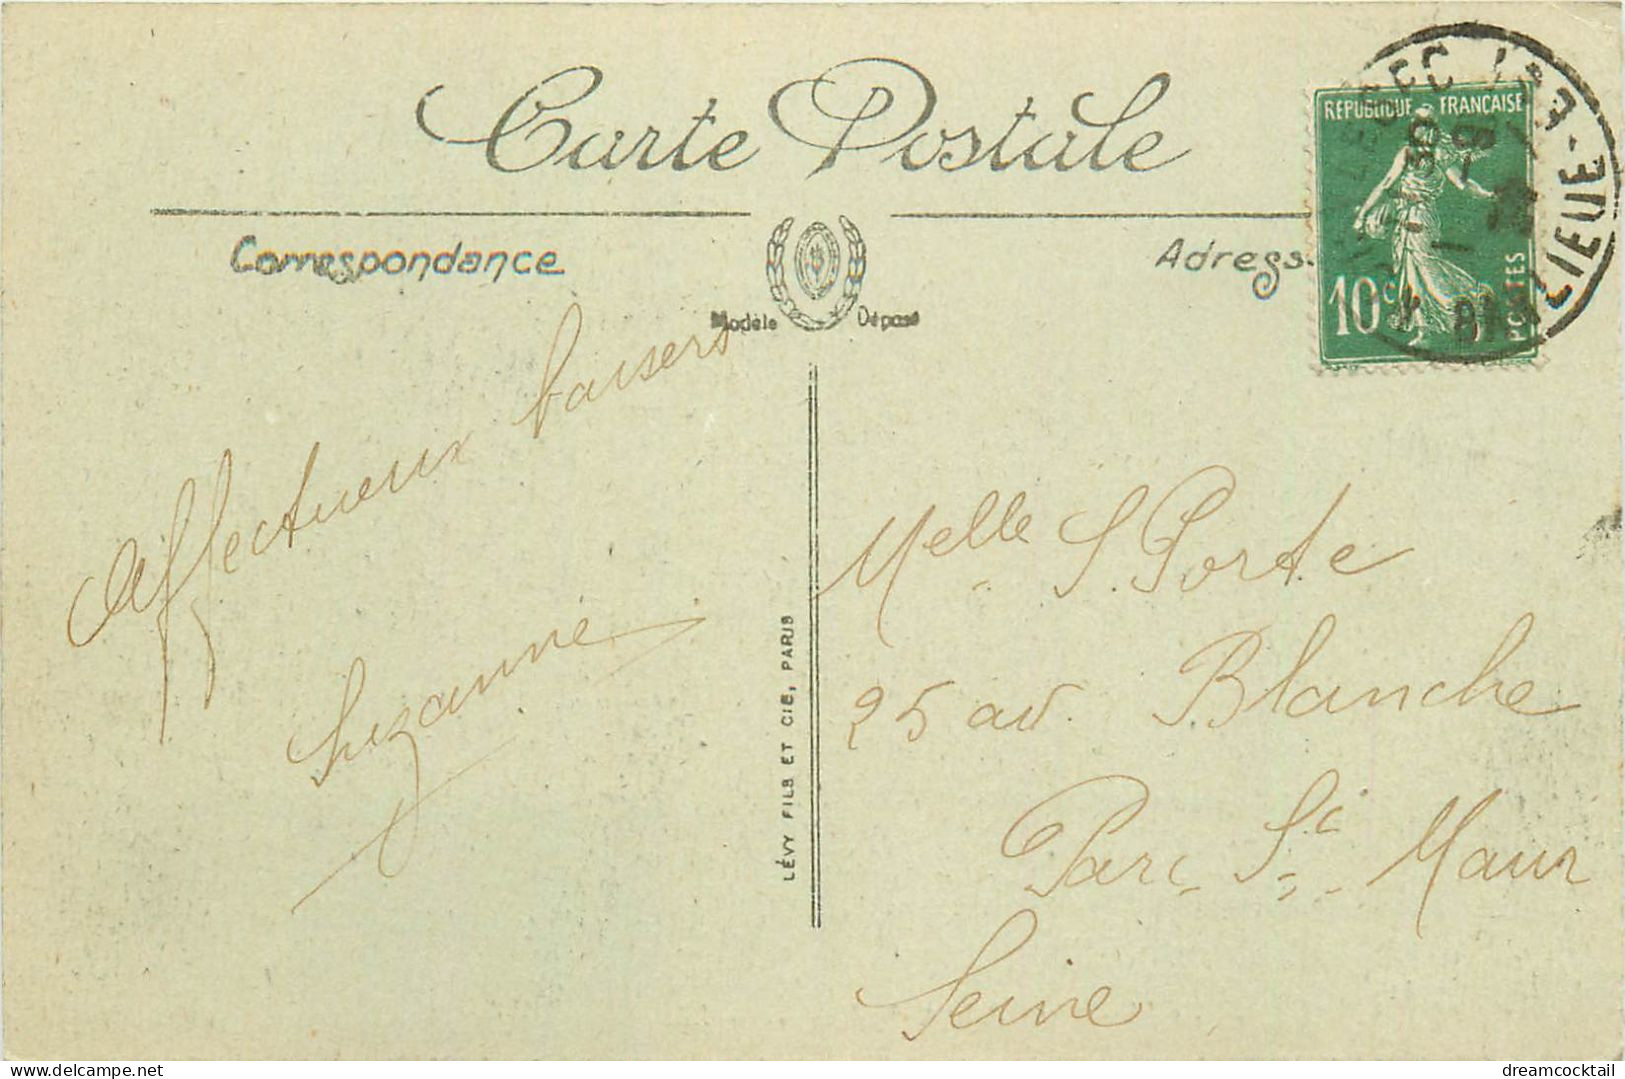 Carte Postale
Correspondance
Adress
Modèle Déposé
REPUBLIQUE FRANÇAISE
10c
POSTES
Affectueux baisers
Suzanne
LÉVY FILS ET CIE, PARIS
Melle S. Porte
25 av. Blanche
Parc St Maur
Seine
dreamcocktail